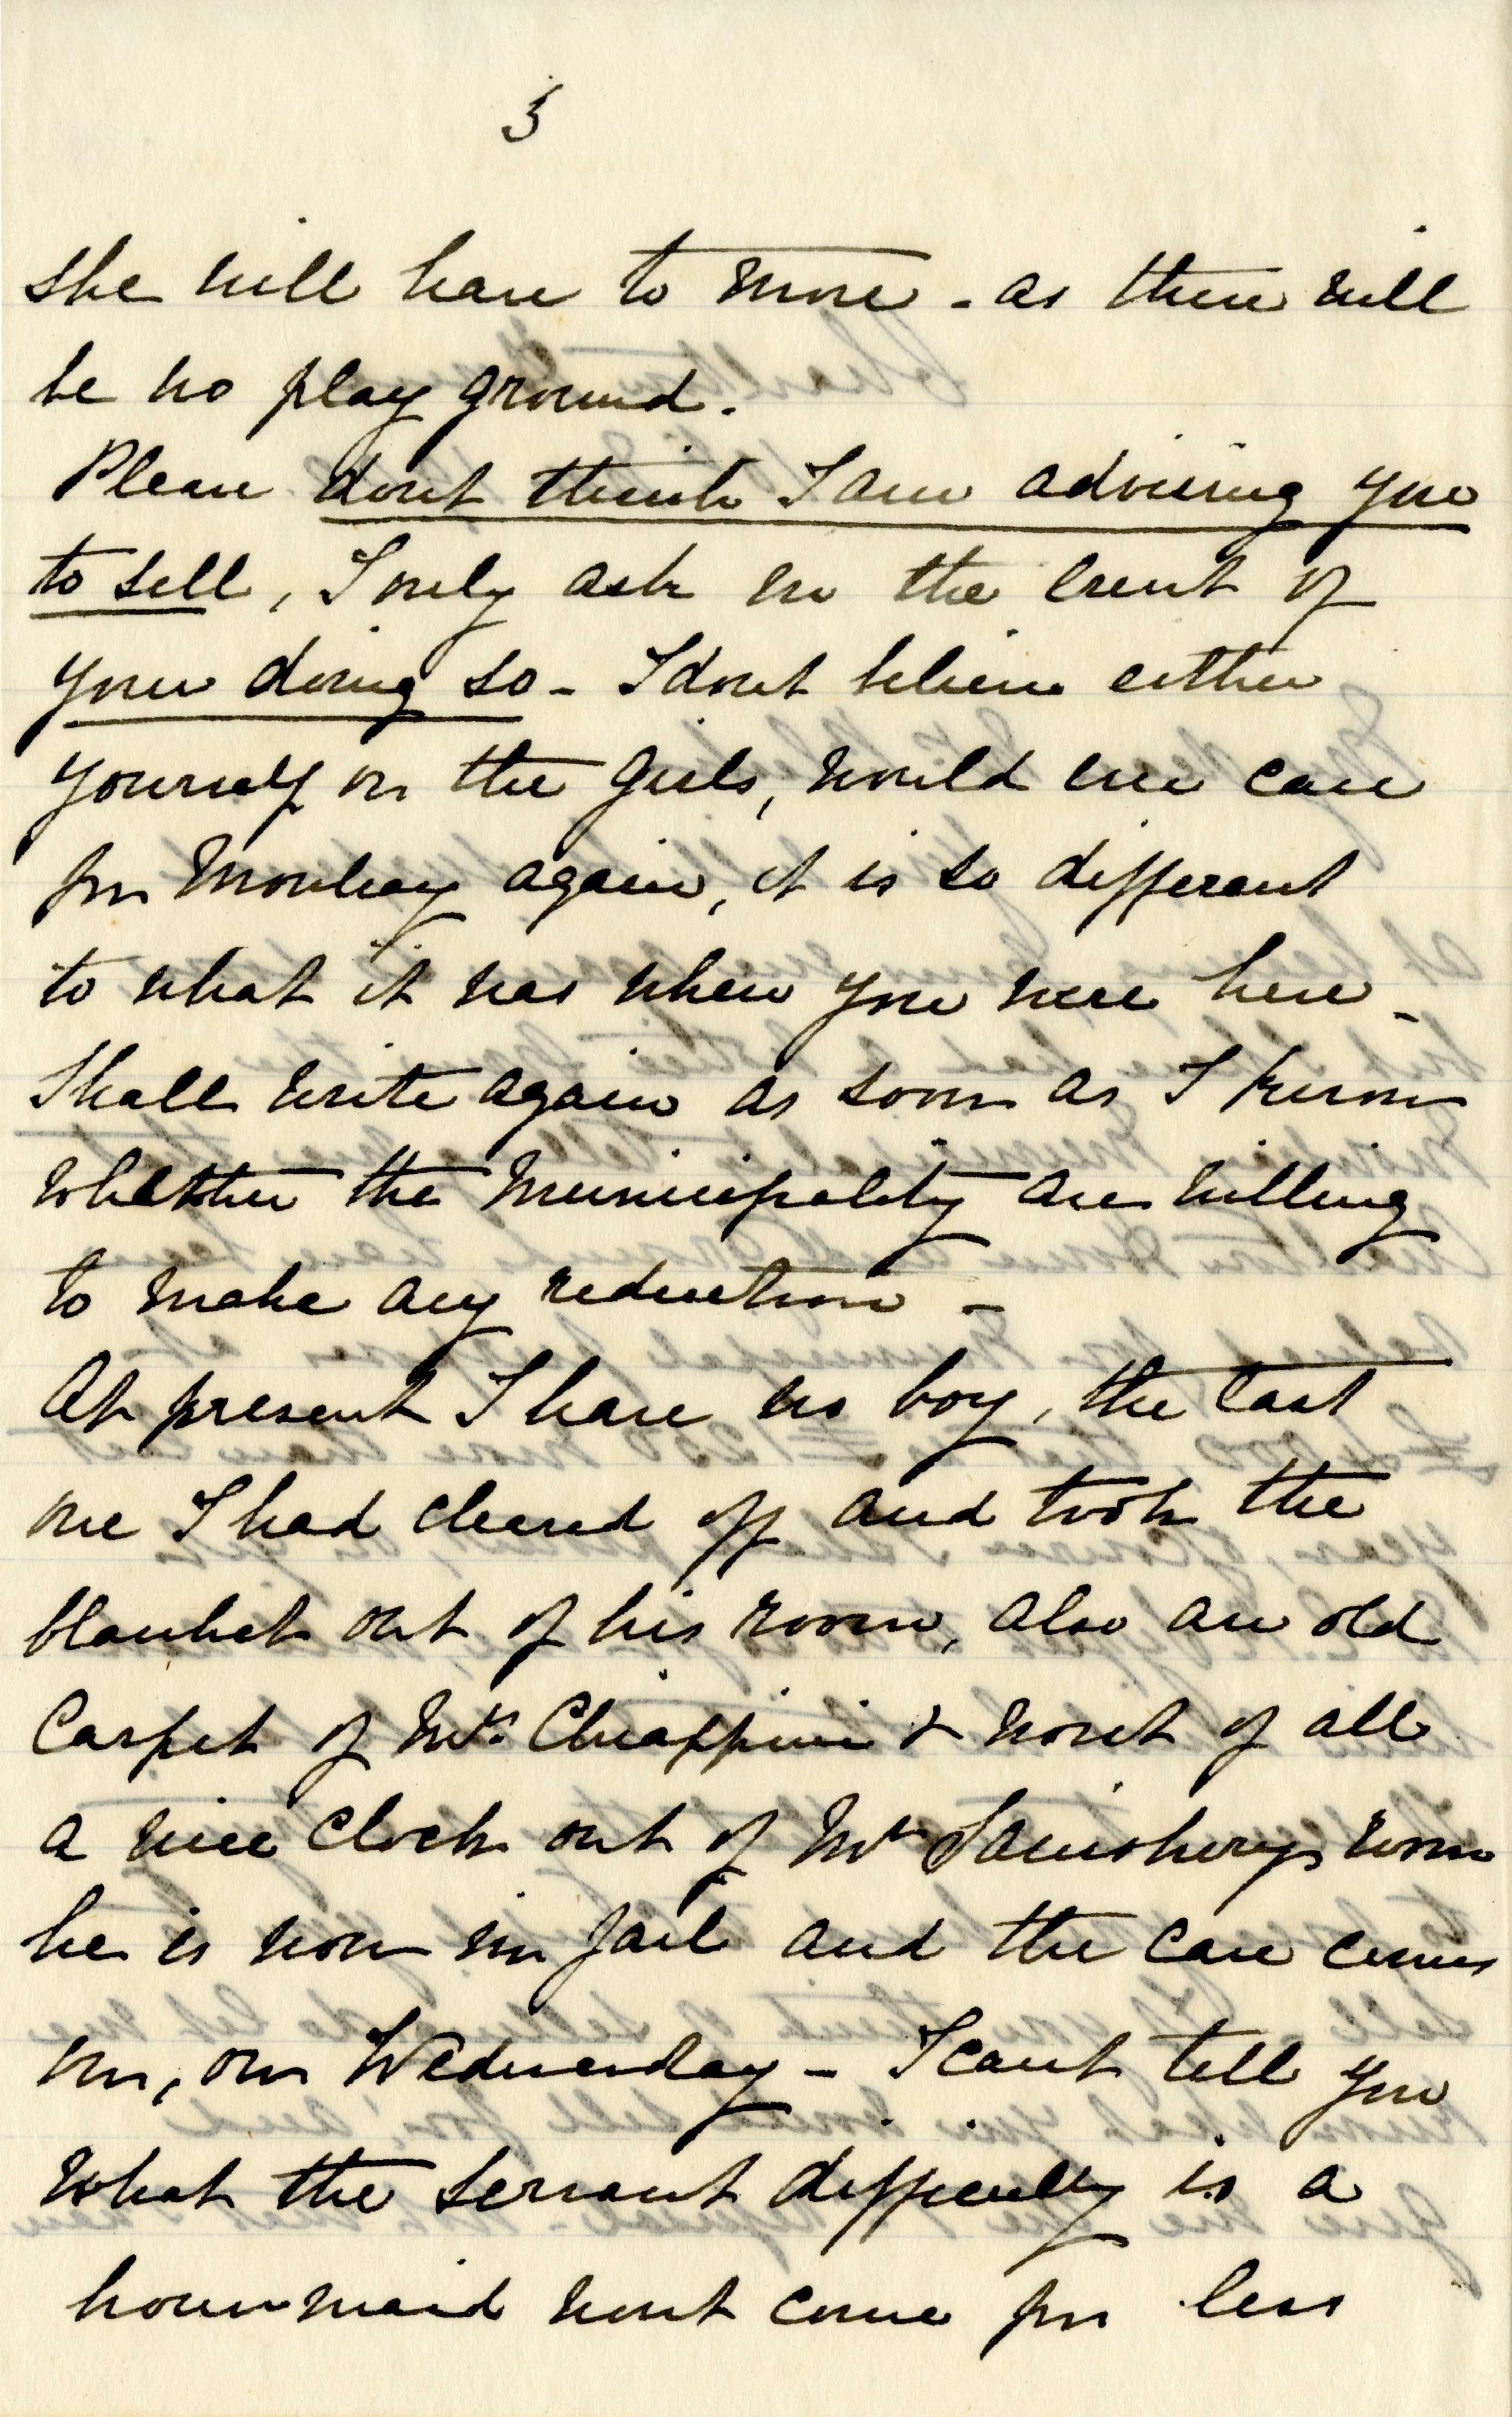 3
she will have to move - as there will
be no play ground.
Please dont think I am advising you
to sell, I only ask in the event of
your doing so - I dont believe either
yourself or the girls, would ever care
for Mowbray again, it is so different
to what it was when you were here -
Shall write again as soon as I know
whether the Municipality are willing
to make any reduction -
At present I have no boy, the last
one I had cleared off and took the
blanket out of his room, also an old
Carpet of Mrs. Chiappini & worst of all
a nice Clock out of Mr Sainsburys room
he is now in jail and the case comes
on, on Wednesday - I cant tell you
what the servant difficulty is a
housemaid wont come for less